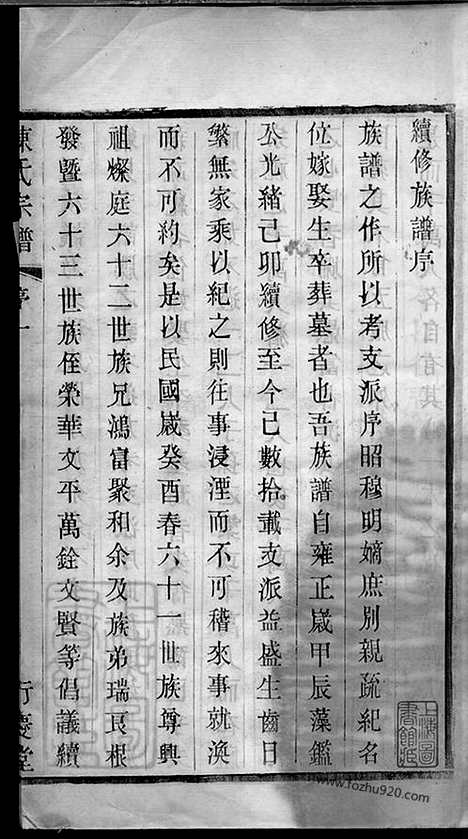 續修族譜序
族譜之作所以考支派序昭穆明嫡庶別親疏紀名
位嫁娶生卒葬墓者也吾族譜自雍正嵗甲辰藻鑑
公光緒己卯續修至今已數拾載支派益盛生齒日
繁無家乘以紀之則往事浸湮而不可稽來事就渙
而不可約矣是以民國嵗癸酉春六十一世族尊興
祖燦庭六十二世族兄鴻富聚和余及族弟瑞良根
發暨六十三世族侄榮華文平萬銓文賢等倡議續
陳氏宗譜 序 一 行慶堂
上海圖書館藏
www.fozhu920.com